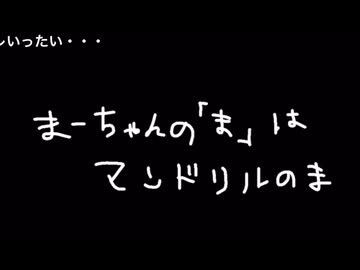 いったい・・・
まーちゃんの「ま」は
マンドリルのま